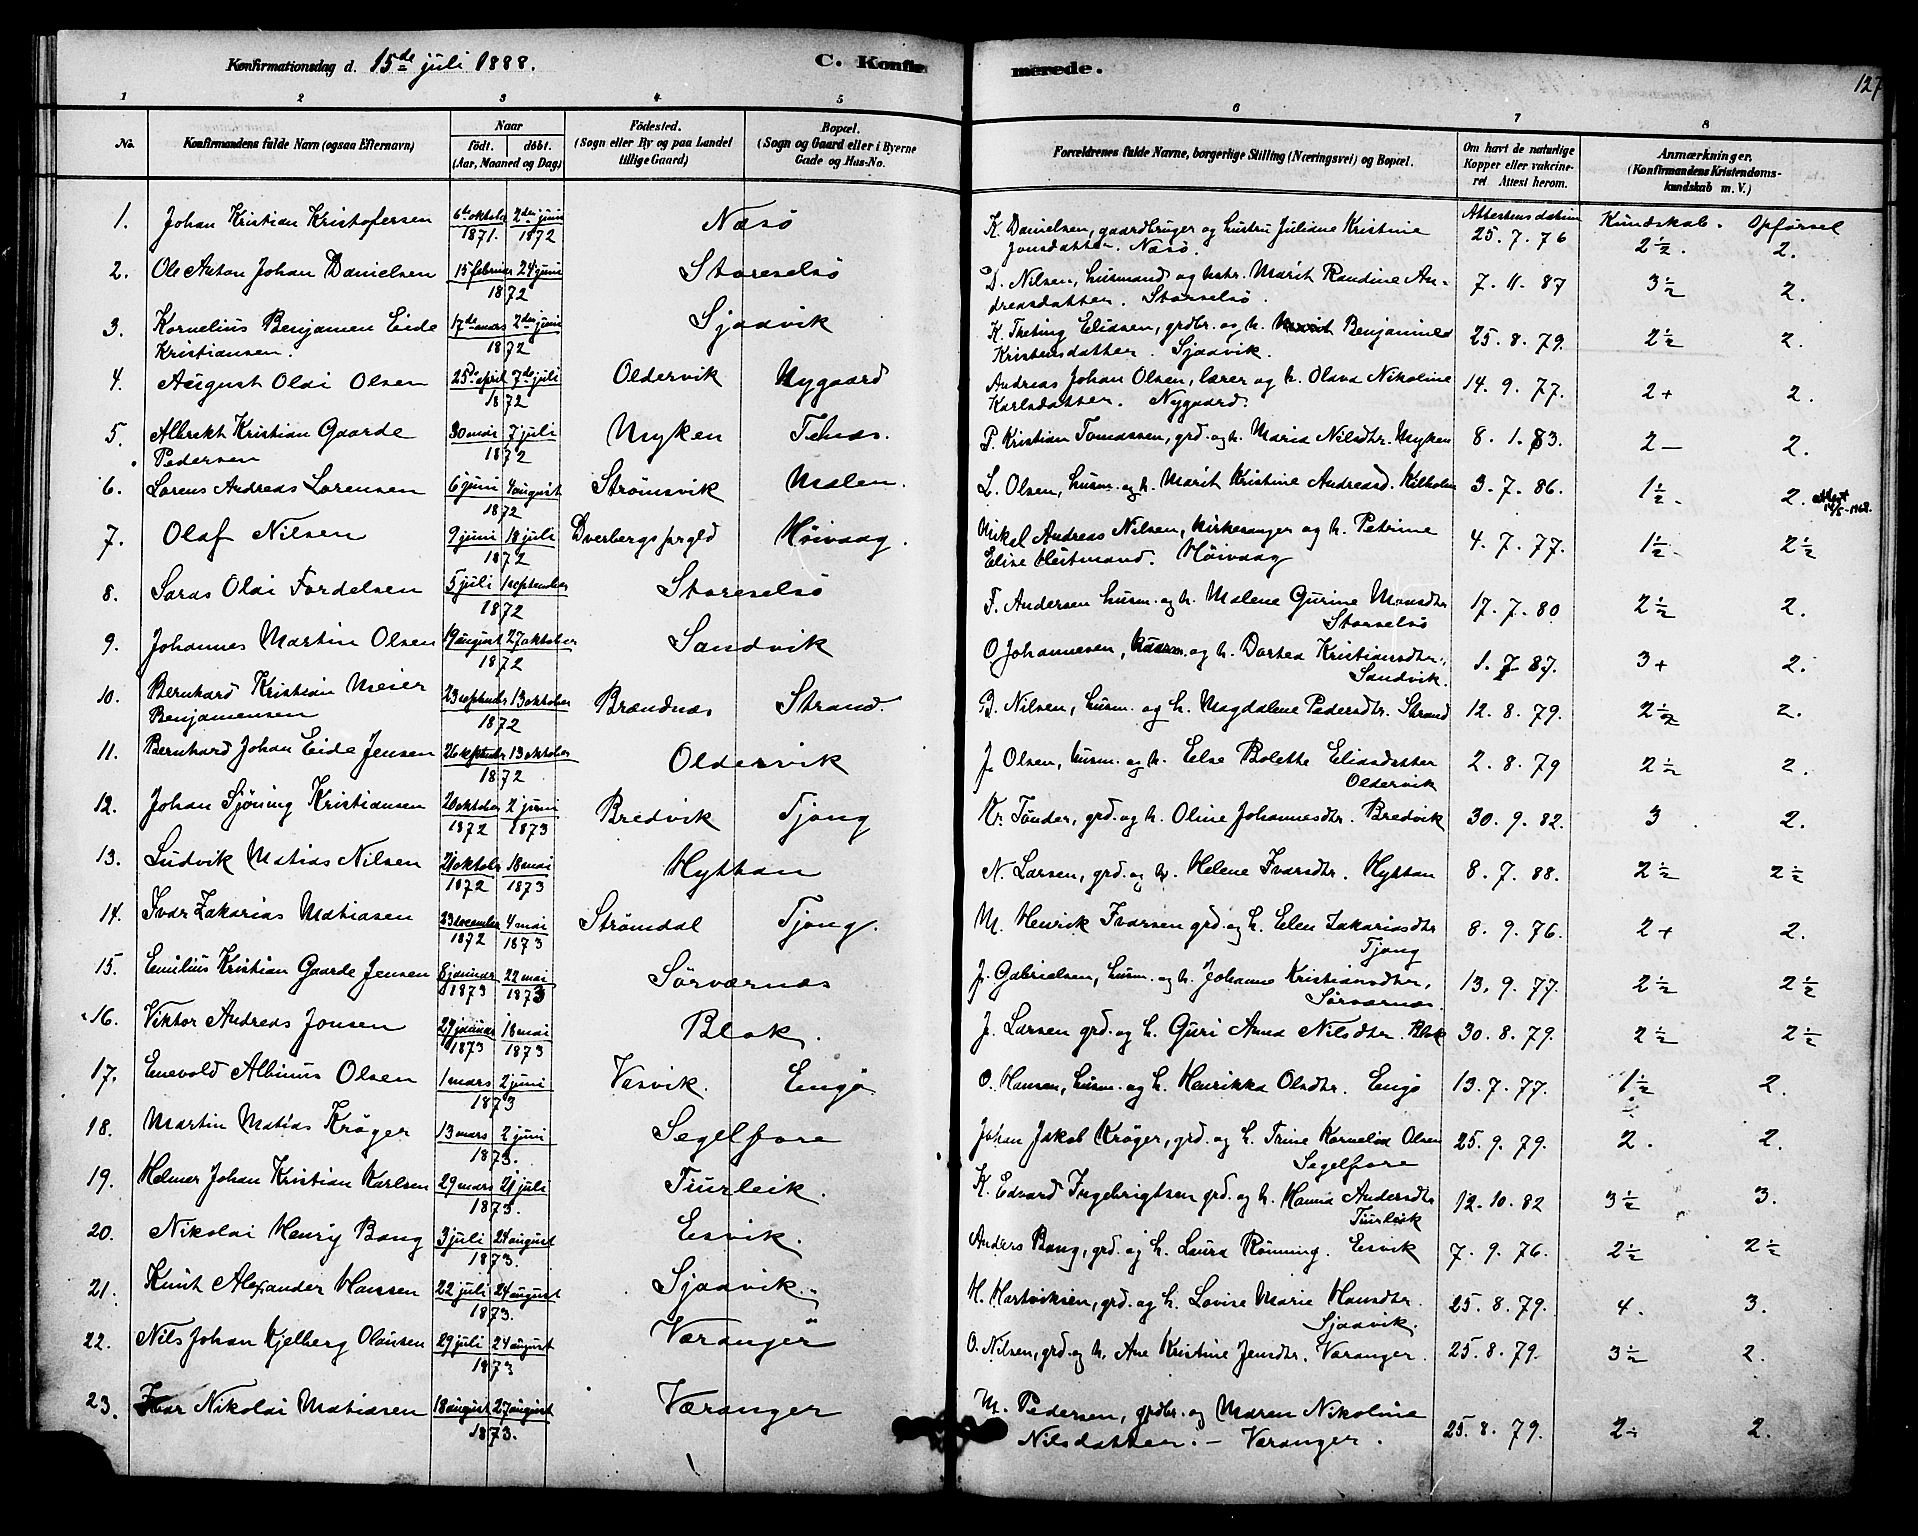 Konfirmationsdag d. 15de juli 1888.
C. Konfir merede.
127
1 2 3 4 5 6 7 8
No.
Konfirmandens fulde Navn (ogsaa Efternavn)
Naar
født. døbt.
(Aar, Maaned og Dag)
Fødested.
(Sogn eller By og paa Landet
tillige Gaard)
Bopæl.
(Sogn og Gaard eller i Byerne
Gade og Hus-No.
Forældrenes fulde Navne, borgerlige Stilling (Næringsvei) og Bopæl.
Om havt de naturlige
Kopper eller vakcine-
ret Attest herom.
Anmærkninger.
(Konfirmandens Kristendoms-
kundskab m. V.)
Attestens datum Kundskab. Opførsel
1. Johan Kristian Kristofersen 6te oktober 1871. 2den juni 1872 Næsö K. Danielsen, gaardbruger og hustru Juliane Kristine
Jonsdatter. Næsö. 25.7.76 2½. 2.
2. Ole Anton Johan Danielsen 15 februar 24 juni 1872 Storeselsö D. Nilsen, husmand og hstr. Marit Randine An-
dreasdatter. Storselsö. 7.11.87 3½ 2.
3. Kornelius Benjamen Eide
Kristiansen. 17de mars 2den juni 1872 Sjaavik K. Theting Eliasen, grdbr. og h. Benjamine
Kristensdatter. Sjaavik. 25.8.79. 2½ 2.
4. August Oldi Olsen 25de april 7de juli 1872 Oldervik Nygaard Andreas Johan Olsen, lærer og h. Olava Nikoline
Karlsdatter. Nygaard. 14.9.77. 2+ 2.
5. Albrekt Kristian Gaarde
Pedersen 30 mai 7 juli 1872 Myken P. Kristian Tomassen, grd. og h. Maria Nilsdtr. Myken 8.1.83. 2- 2.
6. Lorens Andreas Lorensen 6 juni 4 august 1872 Strömsvik Malen. L. Olsen, husm. og h. Marit Kristine Andreasd. Kilholm 3.7.86. 1½. 2.
7. Olaf Nilsen 9 juni 18 juli 1872 Dverbergs prgld Höivaag. Mikal Andreas Nilsen, kirkesanger og h. Petrine
Elise Heitmand. Höivaag 4.7.77. 1½. 2½
8. Saras Oldi Fordelsen 5 juli 1 september 1872 Storeselsö F. Andersen husm. og h. Malene Gurine Monsdtr
Storselsö 17.7.80 2½ 2.
9. Johannes Martin Olsen 19 august 27 oktober 1872 Sandvik O. Johannesen, husm. og h. Dortea Kristiansdtr.
Sandvik. 1.7.87. 3+ 2.
10. Bernhard Kristian Meier
Benjamensen 23 septmber 13 oktober 1872 Brændnæs Strand. B. Nilsen, husm. og h. Magdalene Pedersdtr. Strand 12.8.79. 2½ 2.
11. Bernhard Johan Eide Jensen 26 septmber 13 oktober 1872 Oldervik J. Olsen, husm. og h. Else Bolette Eliasdatter
Oldervik 2.8.79 2½ 2.
12. Johan Sjöning Kristiansen oktober 1872 2 juni 1873 Bredvik Tjong Kr. Tönder, grd. og h. Oline Johannesdtr. Bredvik 30.9.82. 3 2.
13. Ludvik Matias Nilsen 21 oktober 1872 18 mai 1873 Hyttan N. Larsen, grd. og h. Helene Ivarsdtr. Hyttan 8.7.88. 2½ 2½
14. Ivar Zakarias Matiasen 23 december 1872 4 mai 1873 Strömdal Tjong. M. Henrik Ivarsen grd. og h. Elen Zakariasdtr
Tjong 8.9.76. 2+ 2.
15. Emilius Kristian Gaarde Jensen 8 januar 1873 22 mai 1873 Sörværnæs J. Gabrielsen, husm. og h. Johanne Kristiansdtr,
Sörværnæs. 13.9.77. 2½ 2½
16. Viktor Andreas Jonsen 27 januar 1873 18 mai 1873 Blok. J. Larsen grd. og h. Guri Anna Nilsdtr. Blok 30.8.79. 2½ 2½
17. Enevold Albinus Olsen 1 mars 2 juni 1873 Vasvik. Engö O. Hansen, husm. og h. Henrikka Olsdtr. Engö 13.7.77. 1½ 2.
18. Martin Matias Kröger 13 mars 2 juni 1873. Segelfore Johan Jakob Kröger, grd. og h. Trine Kornelia Olsen
Segelfore 25.9.79. 2. 2.
19. Helmer Johan Kristian Karlsen 29 mars 21 juli 1873. Tiurleik. K. Edvard Ingebrigtsen grd. og h. Hanna Andersdtr
Tiurleik 12.10.82 3½ 3.
20. Nikolai Henry Bang 3 juli 24 august 1873. Esvik. Anders Bang, grd. og h. Laura Rönning. Esvik 7.9.76. 2½ 2½
21. Knut Alexander Hanssen 22 juli 24 august 1873. Sjaavik. H. Hartviksen, grd. og h. Lovise Marie Hansdtr.
Sjaavik. 25.8.79. 4. 3.
22. Nils Johan Kjelberg Olausen 29 juli 24 august 1873 Væranger O. Nilsen, grd. og h. Ane Kristine Jensdtr. Væranger. 25.8.79. 3½ 2.
23. Ivar Nikolai Matiasen 18 august 27 august 1873. Væranger M. Pedersen, grdbr. og Maren Nikoline
Nilsdatter. - Væranger. 25.8.79. 2÷ 2.